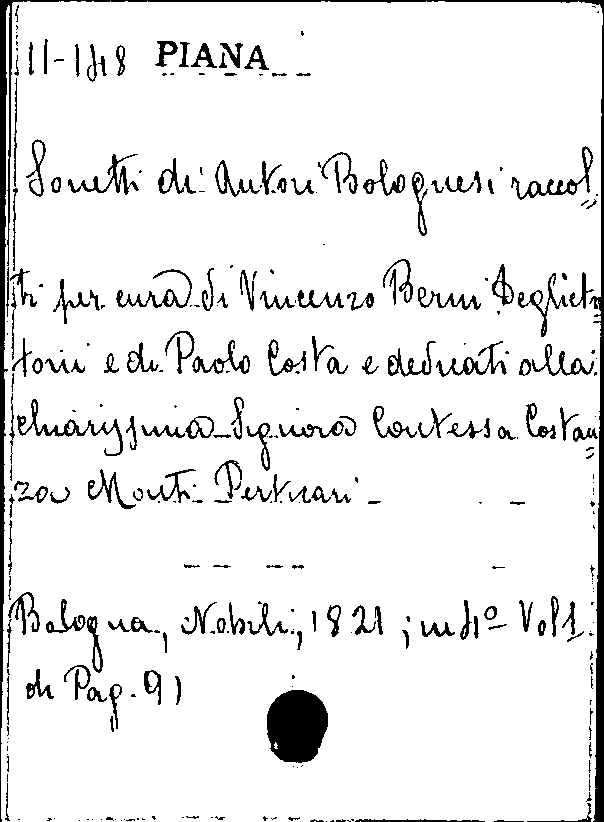 11-148 PIANA
Sonetti di Autori Bolognesi raccol=
ti per cura di Vincenzo Berni Degliet=
toni e di Paolo Costa e dedicati alla
chiarissima Signora Contessa Costan=
za Monti Perticari -
Bologna, Nobili, 1821; in 4º Vol 1.
di Pag. 91